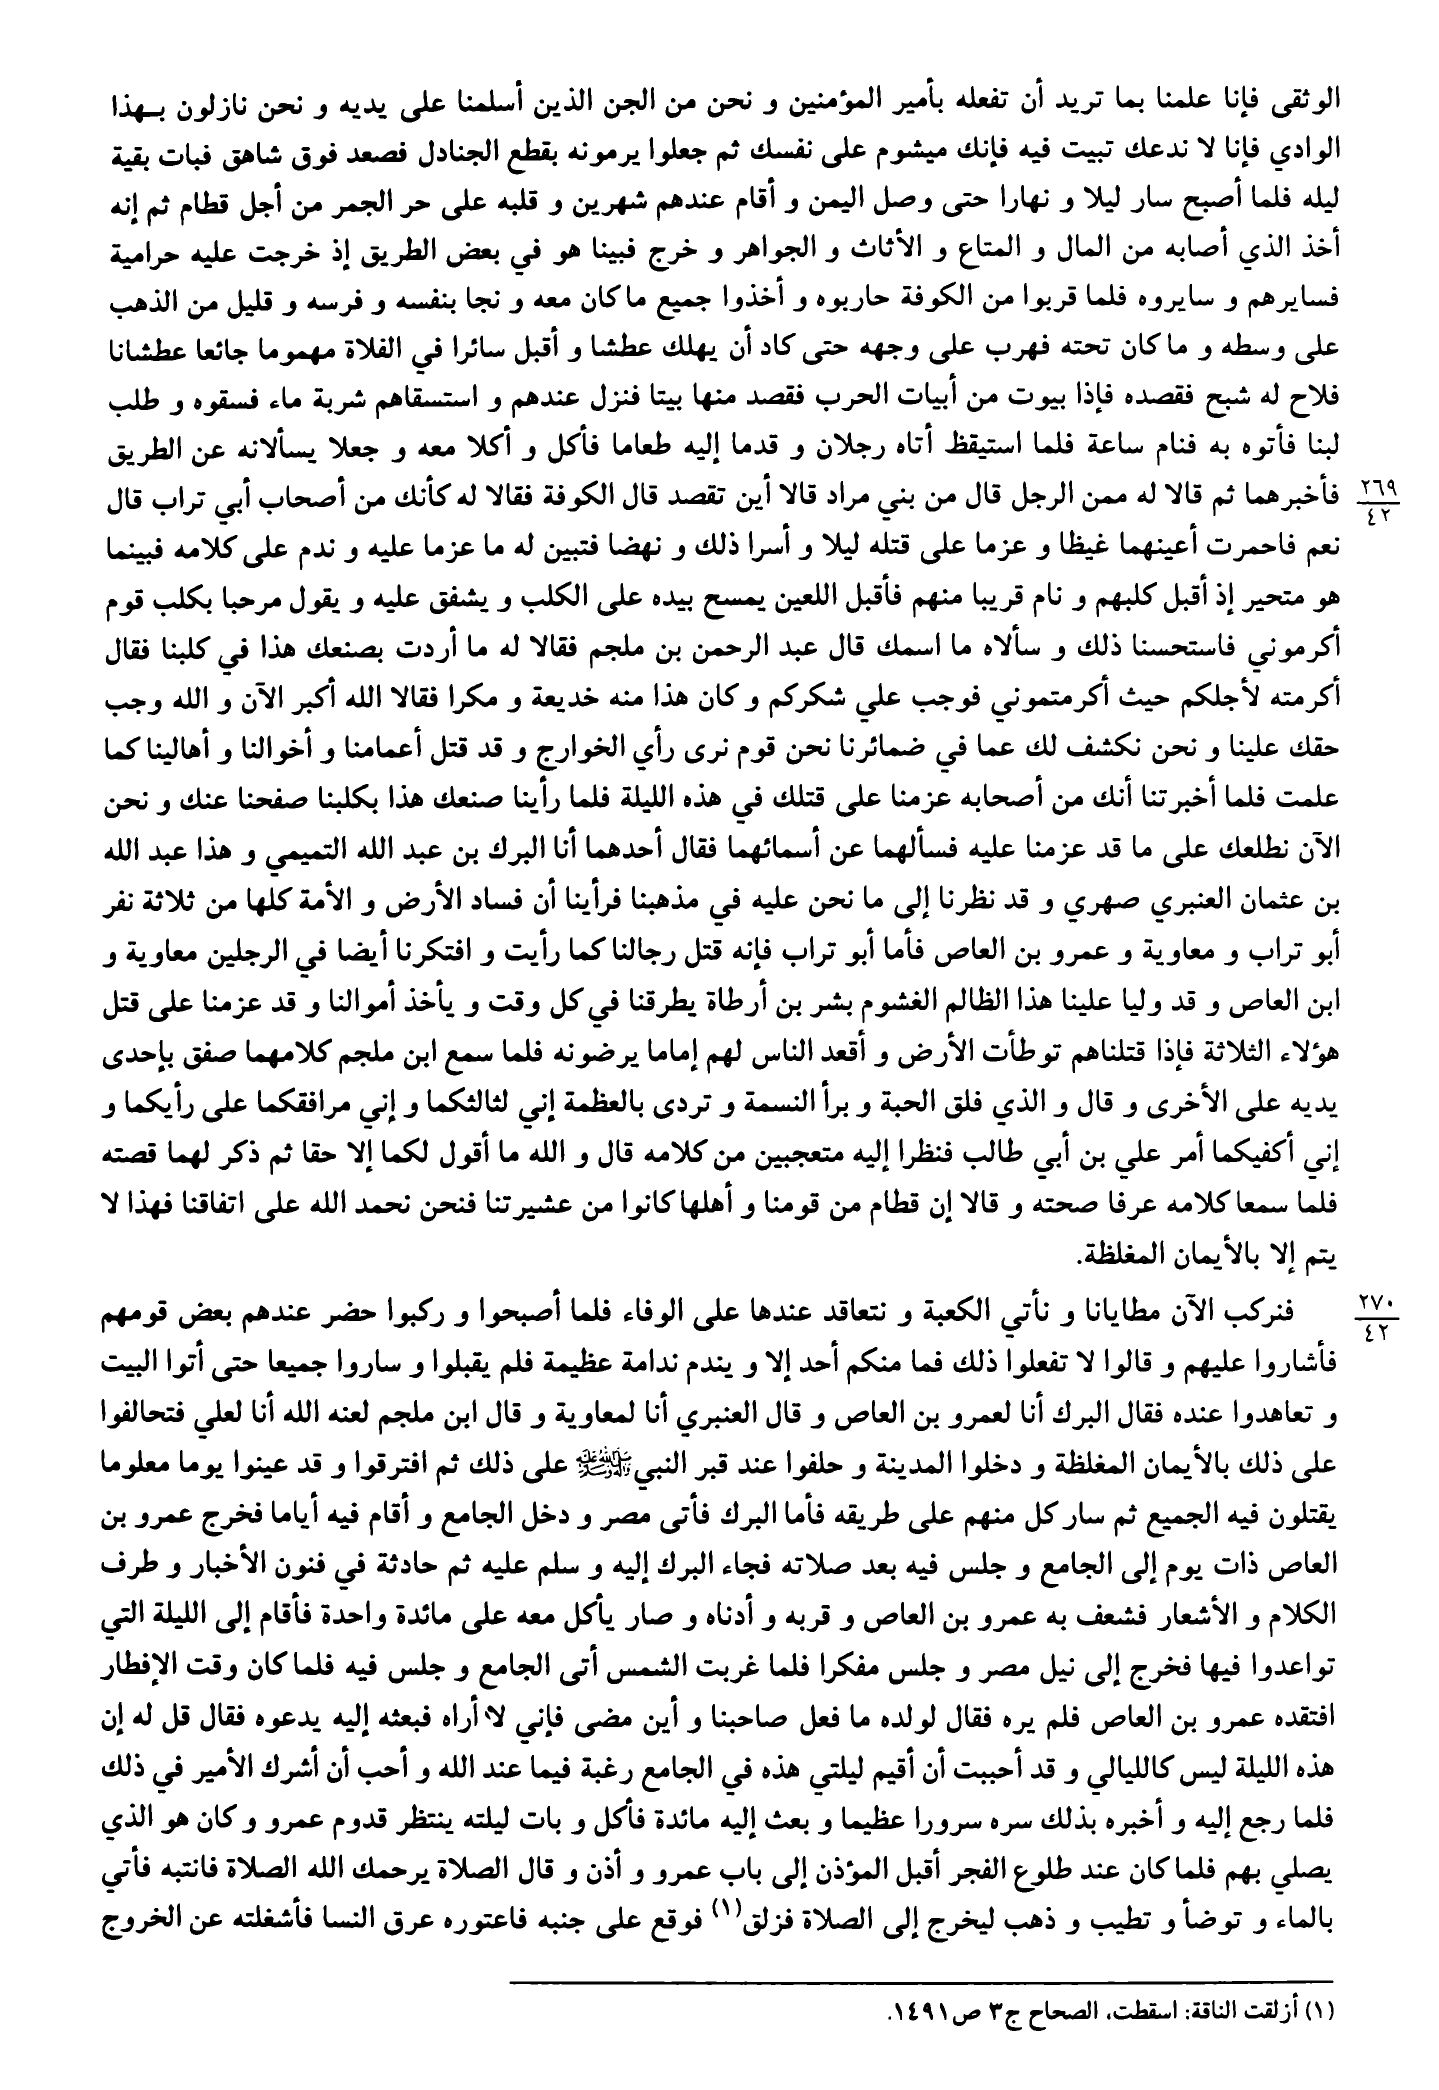 الوثقى فإنا علمنا بما تريد أن تفعله بأمير المؤمنين و نحن من الجن الذين أسلمنا على يديه و نحن نازلون بـهذا
الوادي فإنا لا ندعك تبيت فيه فإنك ميشوم على نفسك ثم جعلوا يرمونه بقطع الجنادل فصعد فوق شاهق فبات بقية
ليله فلما أصبح سار ليلا و نهارا حتى وصل اليمن و أقام عندهم شهرين و قلبه على حر الجمر من أجل قطام ثم إنه
أخذ الذي أصابه من المال و المتاع و الأثاث و الجواهر و خرج فبينا هو في بعض الطريق إذ خرجت عليه حرامية
فسايرهم و سايروه فلما قربوا من الكوفة حاربوه و أخذوا جميع ما كان معه و نجا بنفسه و فرسه و قليل من الذهب
على وسطه و ما كان تحته فهرب على وجهه حتى كاد أن يهلك عطشا و أقبل سائرا في الفلاة مهموما جائعا عطشانا
فلاح له شبح فقصده فإذا بيوت من أبيات الحرب فقصد منها بيتا فنزل عندهم و استسقاهم شربة ماء فسقوه و طلب
لبنا فأتوه به فنام ساعة فلما استيقظ أتاه رجلان و قدما إليه طعاما فأكل و أكلا معه و جعلا يسألانه عن الطريق
فأخبرهما ثم قالا له ممن الرجل قال من بني مراد قالا أين تقصد قال الكوفة فقالا له كأنك من أصحاب أبي تراب قال
٢٦٩
٤٢
نعم فاحمرت أعينهما غيظا و عزما على قتله ليلا و أسرا ذلك و نهضا فتبين له ما عزما عليه و ندم على كلامه فبينما
هو متحير إذ أقبل كلبهم و نام قريبا منهم فأقبل اللعين يمسح بيده على الكلب و يشفق عليه و يقول مرحبا بكلب قوم
أكرموني فاستحسنا ذلك و سألاه ما اسمك قال عبد الرحمن بن ملجم فقالا له ما أردت بصنعك هذا في كلبنا فقال
أكرمته لأجلكم حيث أكرمتموني فوجب علي شكركم و كان هذا منه خديعة و مكرا فقالا الله أكبر الآن و الله وجب
حقك علينا و نحن نكشف لك عما في ضمائرنا نحن قوم نرى رأي الخوارج و قد قتل أعمامنا و أخوالنا و أهالينا كما
علمت فلما أخبرتنا أنك من أصحابه عزمنا على قتلك في هذه الليلة فلما رأينا صنعك هذا بكلبنا صفحنا عنك و نحن
الآن نطلعك على ما قد عزمنا عليه فسألهما عن أسمائهما فقال أحدهما أنا البرك بن عبد الله التميمي و هذا عبد الله
بن عثمان العنبري صهري و قد نظرنا إلى ما نحن عليه في مذهبنا فرأينا أن فساد الأرض و الأمة كلها من ثلاثة نفر
أبو تراب و معاوية و عمرو بن العاص فأما أبو تراب فإنه قتل رجالنا كما رأيت و افتكرنا أيضا في الرجلين معاوية و
ابن العاص و قد وليا علينا هذا الظالم الغشوم بشر بن أرطاة يطرقنا في كل وقت و يأخذ أموالنا و قد عزمنا على قتل
هؤلاء الثلاثة فإذا قتلناهم توطأت الأرض و أقعد الناس لهم إماما يرضونه فلما سمع ابن ملجم كلامهما صفق بإحدى
يديه على الأخرى و قال و الذي فلق الحبة و برأ النسمة و تردى بالعظمة إني لثالثكما و إني مرافقكما على رأيكما و
إني أكفيكما أمر علي بن أبي طالب فنظرا إليه متعجبين من كلامه قال و الله ما أقول لكما إلا حقا ثم ذكر لهما قصته
فلما سمعا كلامه عرفا صحته و قالا إن قطام من قومنا و أهلها كانوا من عشيرتنا فنحن نحمد الله على اتفاقنا فهذا لا
يتم إلا بالأيمان المغلظة.
فنركب الآن مطايانا و نأتي الكعبة و نتعاقد عندها على الوفاء فلما أصبحوا و ركبوا حضر عندهم بعض قومهم
٢٧٠
٤٢
فأشاروا عليهم و قالوا لا تفعلوا ذلك فما منكم أحد إلا و يندم ندامة عظيمة فلم يقبلوا و ساروا جميعا حتى أتوا البيت
و تعاهدوا عنده فقال البرك أنا لعمرو بن العاص و قال العنبري أنا لمعاوية و قال ابن ملجم لعنه الله أنا لعلي فتحالفوا
على ذلك بالأيمان المغلظة و دخلوا المدينة و حلفوا عند قبر النبي ﷺ على ذلك ثم افترقوا و قد عينوا يوما معلوما
يقتلون فيه الجميع ثم سار كل منهم على طريقه فأما البرك فأتى مصر و دخل الجامع و أقام فيه أياما فخرج عمرو بن
العاص ذات يوم إلى الجامع و جلس فيه بعد صلاته فجاء البرك إليه و سلم عليه ثم حادثة في فنون الأخبار و طرف
الكلام و الأشعار فشعف به عمرو بن العاص و قربه و أدناه و صار يأكل معه على مائدة واحدة فأقام إلى الليلة التي
تواعدوا فيها فخرج إلى نيل مصر و جلس مفكرا فلما غربت الشمس أتى الجامع و جلس فيه فلما كان وقت الإفطار
افتقده عمرو بن العاص فلم يره فقال لولده ما فعل صاحبنا و أين مضى فإني لا أراه فبعثه إليه يدعوه فقال قل له إن
هذه الليلة ليس كالليالي و قد أحببت أن أقيم ليلتي هذه في الجامع رغبة فيما عند الله و أحب أن أشرك الأمير في ذلك
فلما رجع إليه و أخبره بذلك سره سرورا عظيما و بعث إليه مائدة فأكل و بات ليلته ينتظر قدوم عمرو و كان هو الذي
يصلي بهم فلما كان عند طلوع الفجر أقبل المؤذن إلى باب عمرو و أذن و قال الصلاة يرحمك الله الصلاة فانتبه فأتي
بالماء و توضأ و تطيب و ذهب ليخرج إلى الصلاة فزلق(١) فوقع على جنبه فاعتوره عرق النسا فأشغلته عن الخروج
(١) أزلقت الناقة: اسقطت، الصحاح ج٣ ص١٤٩١.